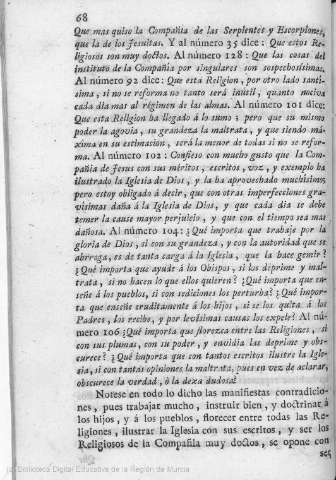 68
Que mas quiso la Compañia de las Serpientes y Escorpiones,
que la de los Jesuitas. Y al número 35 dice: Que estos Re-
ligiosos son muy doctos. Al número 128: Que las cosas del
instituto de la Compañia por singulares son sospechosisimas.
Al número 92 dice: Que esta Religion, por otro lado santi-
sima, si no se reforma no tanto será inutil, quanto nociva
cada dia mas al régimen de las almas. Al número 101 dice:
Que esta Religion ha llegado á lo sumo; pero que su mismo
poder la agovia, su grandeza la maltrata, y que siendo má-
xima en su estimacion, será la menor de todas si no se refor-
ma. Al número 102: Confieso con mucho gusto que la Compa-
ñia de Jesus con sus méritos, escritos, voz, y exemplo ha
ilustrado la Iglesia de Dios, y la ha aprovechado muchisimo,
pero estoy obligado á decir, que con otras imperfecciones gra-
visimas daña á la Iglesia de Dios, y que cada dia se debe
temer la cause mayor perjuicio, y que con el tiempo sea mas
dañosa. Al número 104: ¿Qué importa que trabaje por la
gloria de Dios, si con su grandeza, y con la autoridad que se
abrroga, es de tanta carga á la Iglesia, que la hace gemir?
¿Qué importa que ayude á los Obispos, si los deprime y mal-
trata, si no hacen lo que ellos quieren? ¿Qué importa que en-
señe á los pueblos, si con sediciones los perturba? ¿Qué impor-
ta que enseñe eruditamente á los hijos, si se los quita á los
Padres, los recibe, y por levisimas causas los expele? Al nú-
mero 106 ¿Qué importa que florezca entre las Religiones, si
con sus plumas, con su poder, y envidia las deprime y obs-
curece? ¿Qué importa que con tantos escritos ilustre la Igle-
sia, si con tantas opiniones la maltrata, pues en vez de aclarar,
obscurece la verdad, ó la dexa dudosa?
Notese en todo lo dicho las manifiestas contradicio-
nes, pues trabajar mucho, instruir bien, y doctrinar á
los hijos, y á los pueblos, florecer entre todas las Re-
ligiones, ilustrar la Iglesia con sus escritos, y ser los
Religiosos de la Compañia muy doctos, se opone con
ser
(c) Biblioteca Digital Educativa de la Región de Murcia